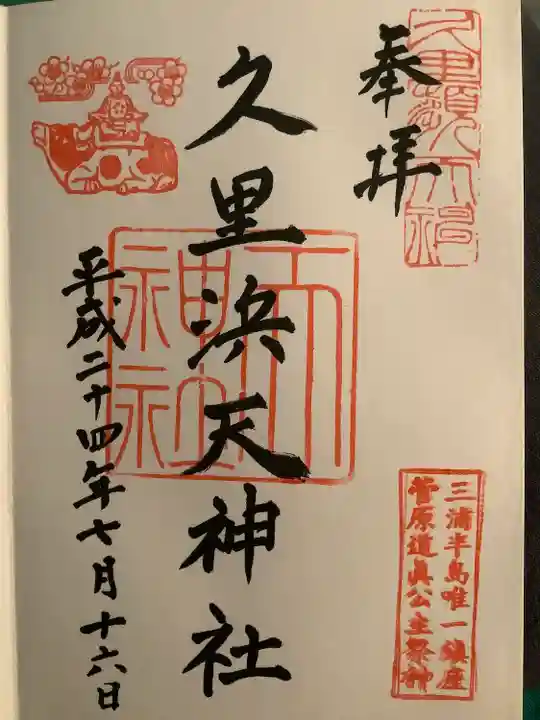 奉拝
久里浜天神社
平成二十四年七月十六日
三浦半島唯一鎮座
菅原道眞公主祭神
天神社